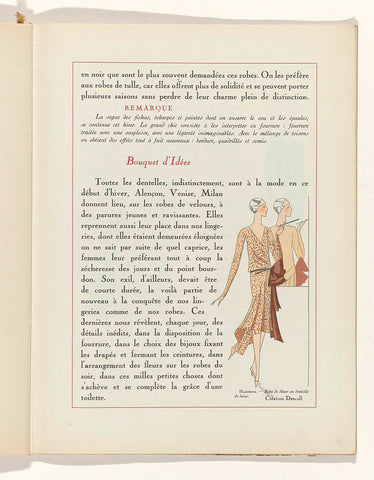 en noir que sont le plus souvent demandées ces robes. On les préfère
aux robes de tulle, car elles offrent plus de solidité et se peuvent porter
plusieurs saisons sans perdre de leur charme plein de distinction.
REMARQUE
La vogue des fichus, écharpes et pointes dont on enserre le cou et les épaules,
se continue cet hiver. Le grand chic consiste à les interpréter en fourrure : fourrure
traitée avec une souplesse, avec une légèreté inimaginables. Avec le mélange de toisons
on obtient des effets tout à fait nouveaux : bordure, quadrillés et semis.
Bouquet d'Idées
Toutes les dentelles, indistinctement, sont à la mode en ce
début d'hiver, Alençon, Venise, Milan
donnent lieu, sur les robes de velours, à
des parures jeunes et ravissantes. Elles
reprennent aussi leur place dans nos linge-
ries, dont elles étaient demeurées éloignées
on ne sait par suite de quel caprice, les
femmes leur préférant tout à coup la
sécheresse des jours et du point bour-
don. Son exil, d'ailleurs, devait être
de courte durée, la voilà partie de
nouveau à la conquête de nos lin-
geries comme de nos robes. Ces
dernières nous révèlent, chaque jour, des
détails inédits, dans la disposition de la
fourrure, dans le choix des bijoux fixant
les drapés et fermant les ceintures, dans
l'arrangement des fleurs sur les robes du
soir, dans ces milles petites choses dont
s'achève et se complète la grâce d'une
toilette.
Robe de dîner en dentelle
de laine.
Création Drecoll